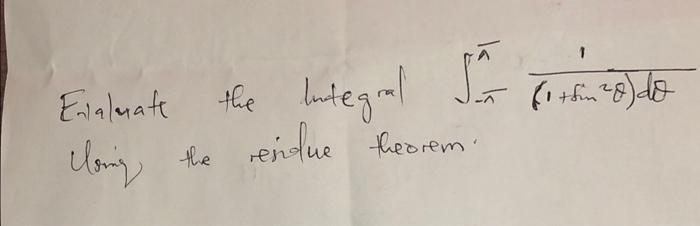 Evaluate the Integral ∫_{-π}^{π} 1/(1+sin²θ)dθ
Using the residue theorem.